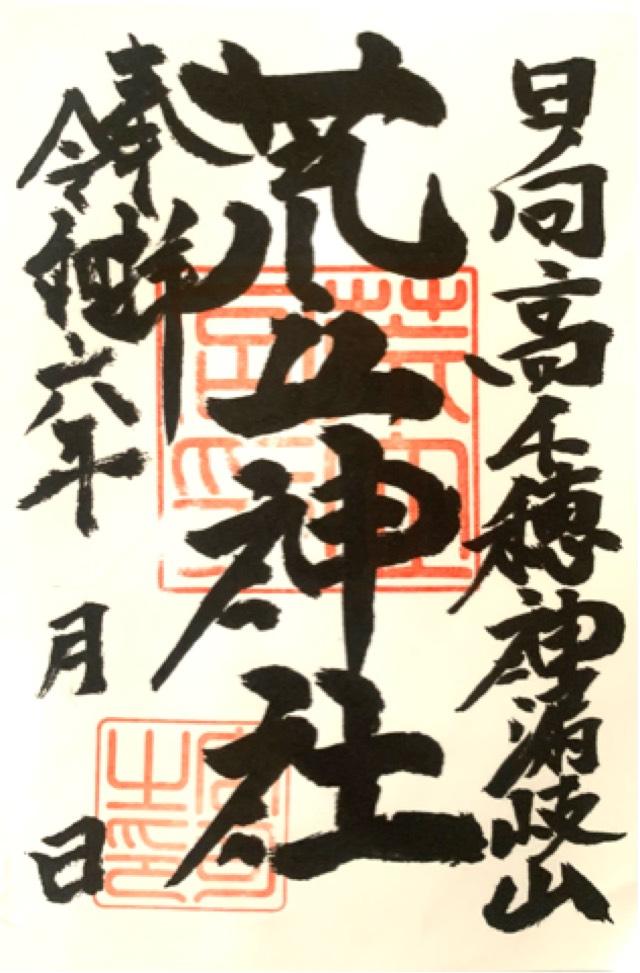 日向高千穂神漏岐山
荒立神社
奉拝
令和六年 月 日
宮司之印